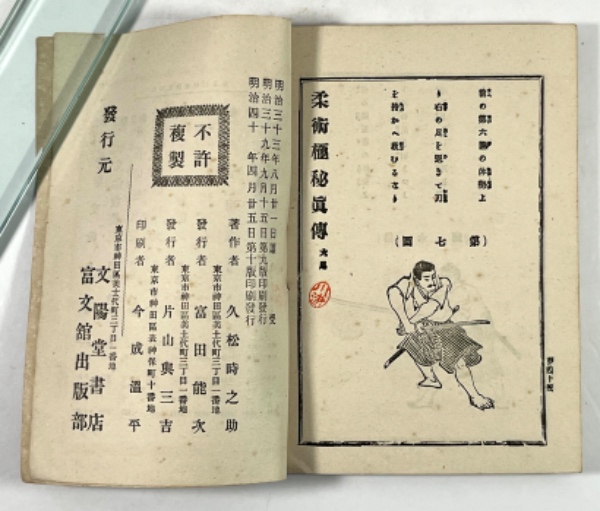 前の第六圖の体勢上
り右の足を踏きて刀
を拾かへ敵むるなり
（第七圖）
柔術極秘眞傳 大尾
明治三十三年八月廿一日
明治三十九年九月十五日第九版印刷發行
明治四十年四月廿五日第十版印刷發行
不許
複製
著作者 久松時之助
東京市神田區美土代町三丁目一番地
發行者 富田能次
東京市神田區美土代町三丁目一番地
發行者 片山與三吉
東京市神田區表神保町十番地
印刷者 今成溫平
發行元
東京市神田區美土代町三丁目一番地
文陽堂書店
富文館出版部